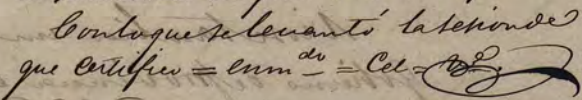 Con lo que se levantó la sesion de
que certifico = enm^do = Cel =